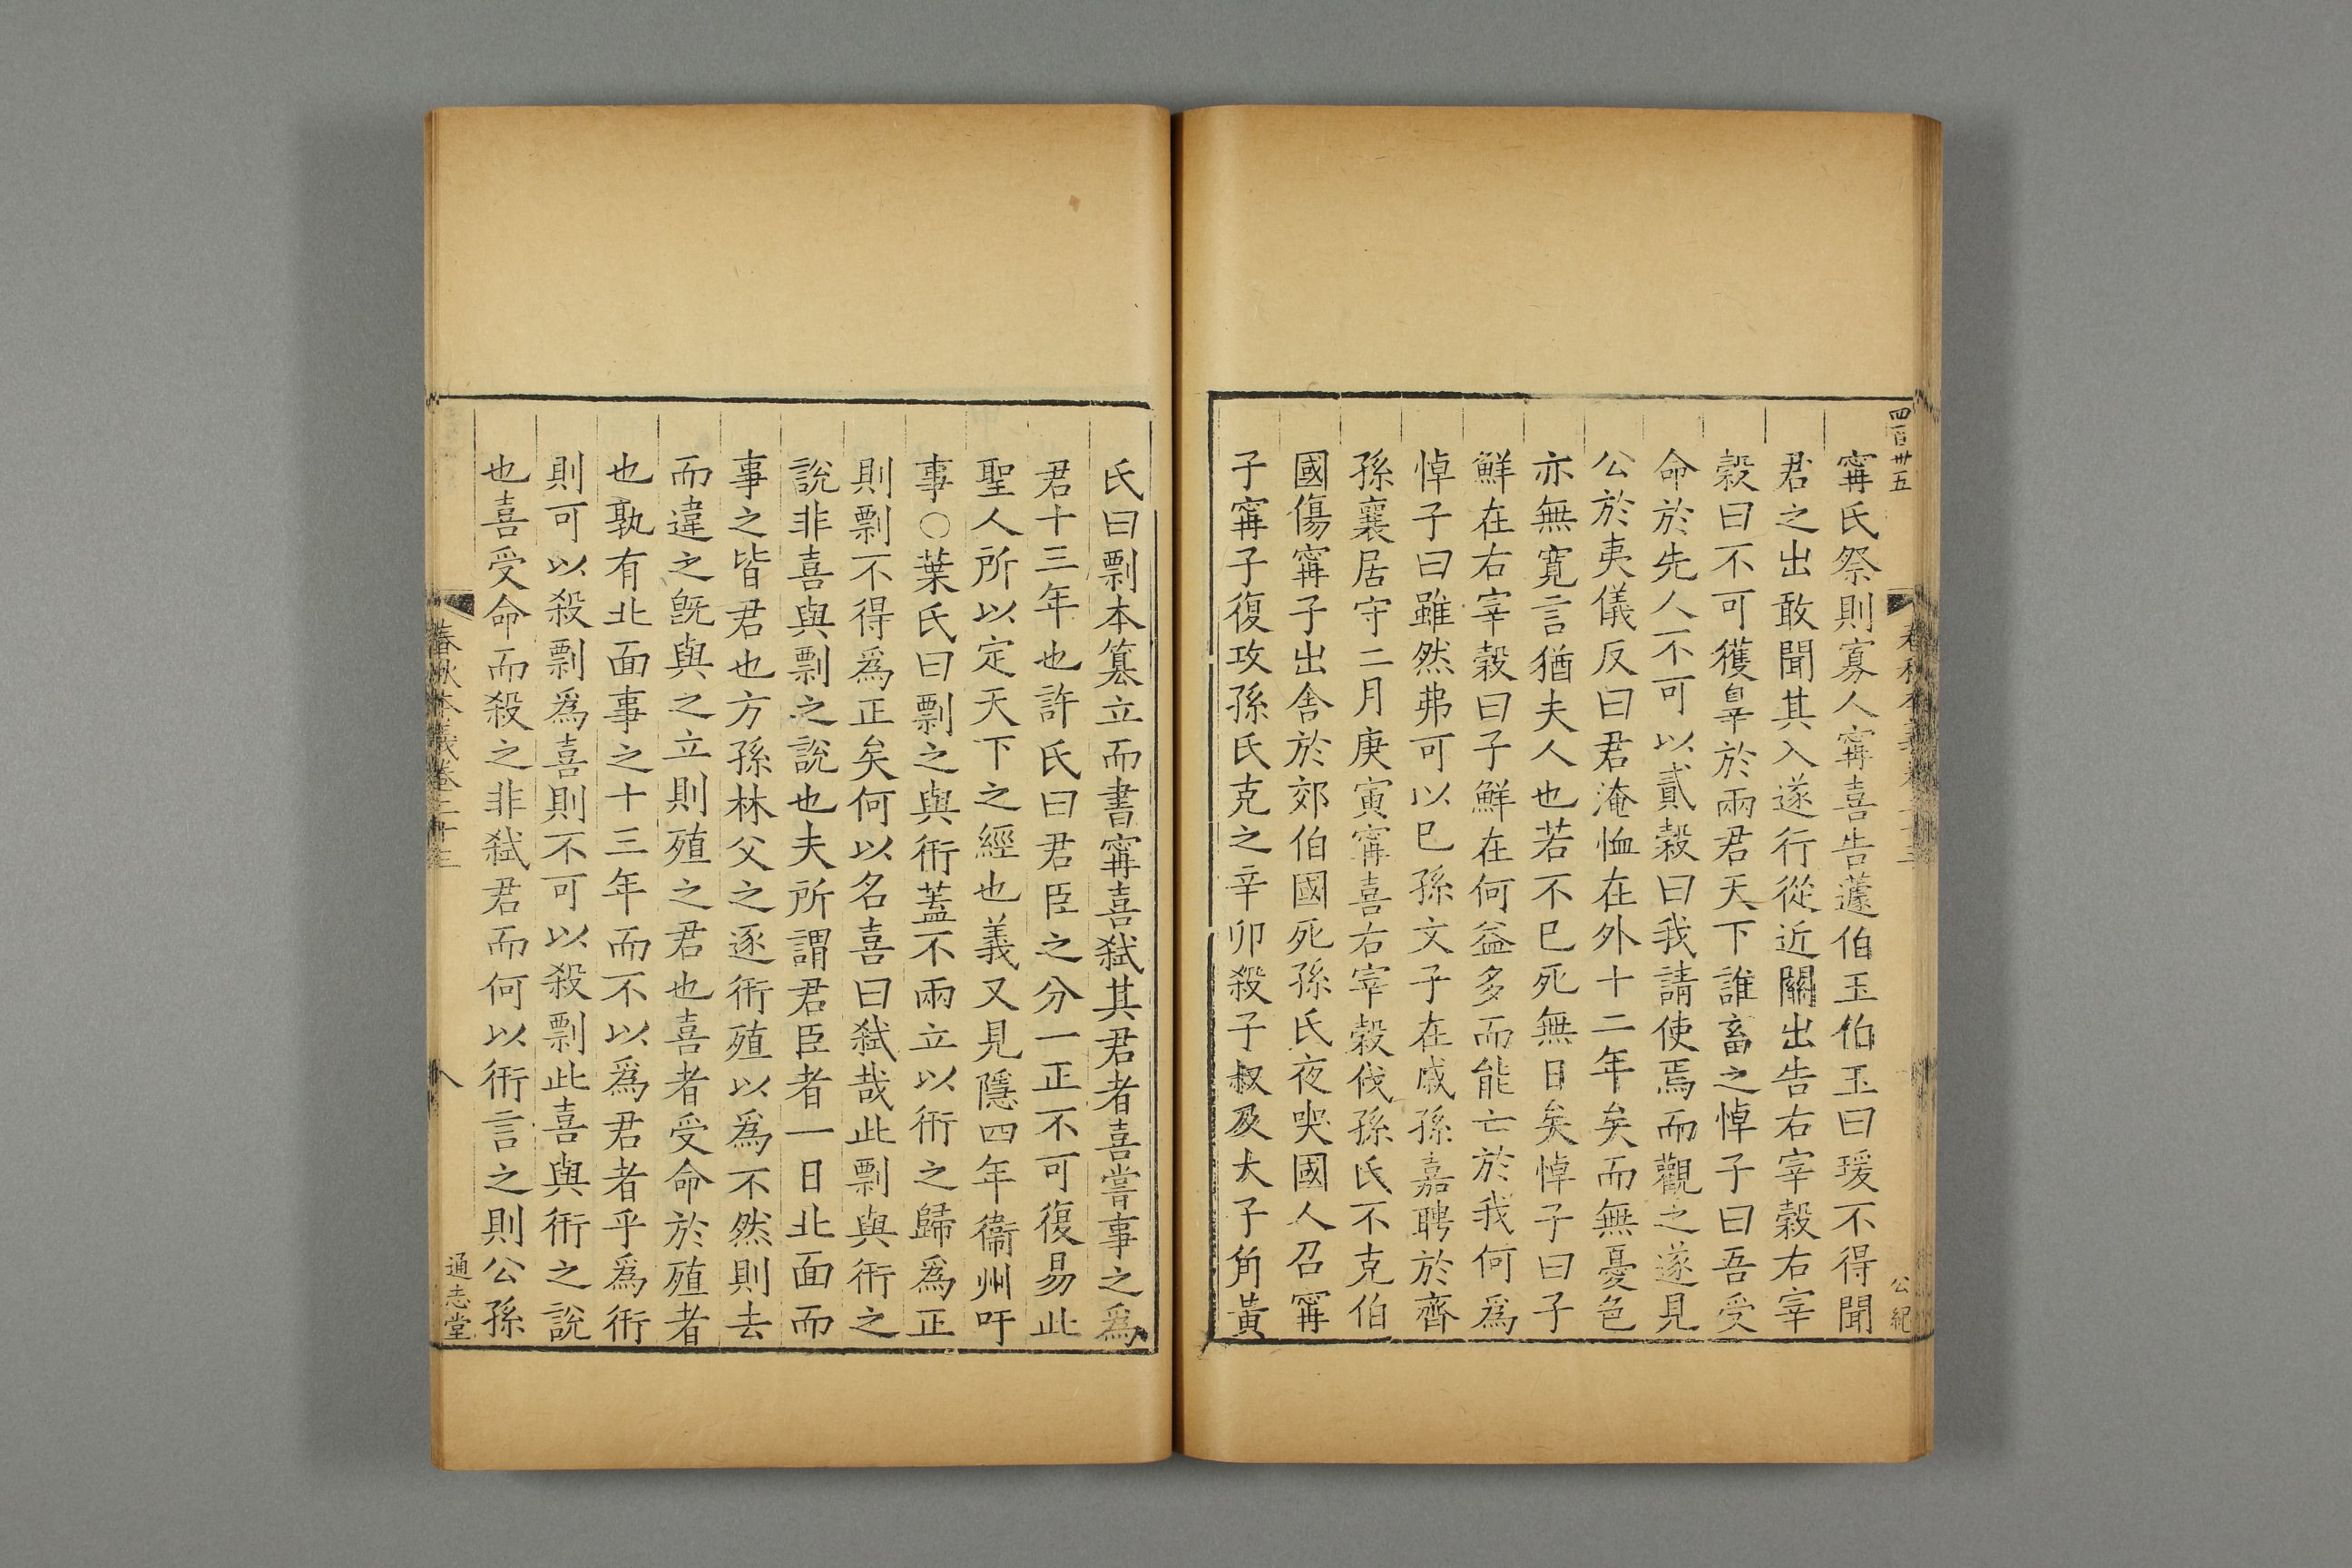 四百卅五
甯氏祭則寡人甯喜告蘧伯玉伯玉曰瑗不得聞
君之出敢聞其入遂行從近關出告右宰穀右宰
穀曰不可獲辠於兩君天下誰畜之悼子曰吾受
命於先人不可以貳穀曰我請使焉而觀之遂見
公於夷儀反曰君淹恤在外十二年矣而無憂色
亦無寬言猶夫人也若不已死無日矣悼子曰子
鮮在右宰穀曰子鮮在何益多而能亡於我何爲
悼子曰雖然弗可以已孫文子在戚孫嘉聘於齊
孫襄居守二月庚寅甯喜右宰穀伐孫氏不克伯
國傷甯子出舍於郊伯國死孫氏夜哭國人召甯
子甯子復攻孫氏克之辛卯殺子叔及大子角黃
公紀
氏曰剽本篡立而書甯喜弒其君者喜嘗事之爲
君十三年也許氏曰君臣之分一正不可復易此
聖人所以定天下之經也義又見隱四年衞州吁
事○葉氏曰剽之與衎蓋不兩立以衎之歸爲正
則剽不得爲正矣何以名喜曰弒哉此剽與衎之
說非喜與剽之說也夫所謂君臣者一日北面而
事之皆君也方孫林父之逐衎殖以爲不然則去
而違之旣與之立則殖之君也喜者受命於殖者
也孰有北面事之十三年而不以爲君者乎爲衎
則可以殺剽爲喜則不可以殺剽此喜與衎之說
也喜受命而殺之非弒君而何以衎言之則公孫
春秋本義卷二十三
八
通志堂